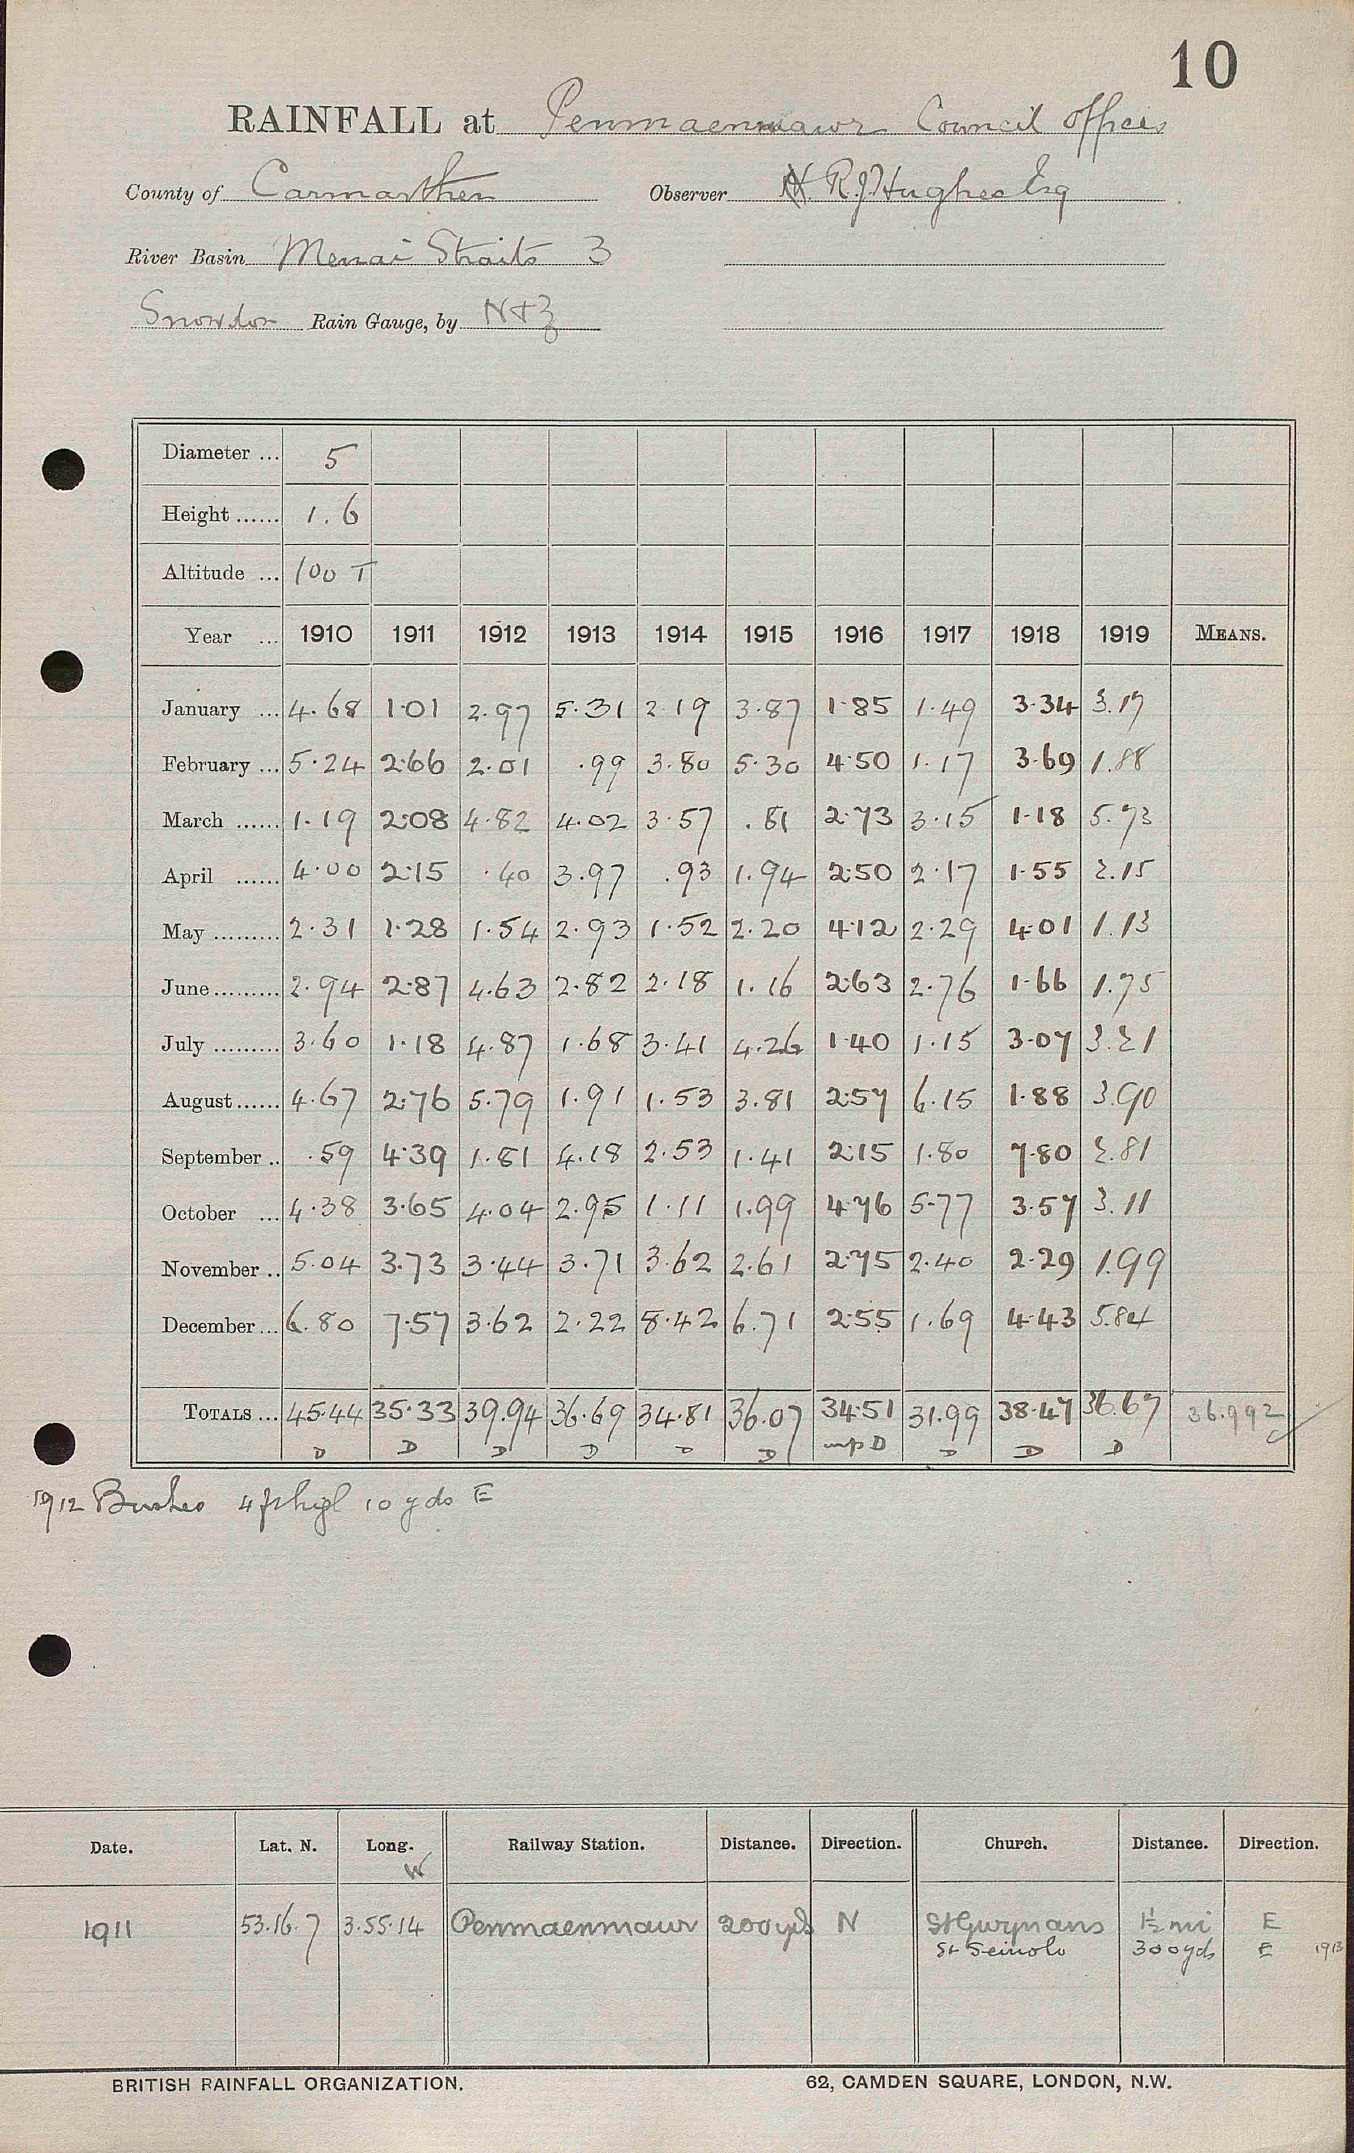 10
RAINFALL at Penmaenmawr Council Offices
County of Carmarthen Observer H. R.J. Hughes Esq
River Basin Menai Straits 3
Snowdon Rain Gauge, by N+Z
Diameter ... 5
Height ...... 1.6
Altitude ... 100 T
Year ... 1910 1911 1912 1913 1914 1915 1916 1917 1918 1919 MEANS.
January ... 4.68 1.01 2.97 5.31 2.19 3.87 1.85 1.49 3.34 3.17
February ... 5.24 2.66 2.01 .99 3.80 5.30 4.50 1.17 3.69 1.88
March ...... 1.19 2.08 4.82 4.02 3.57 .81 2.73 3.15 1.18 5.73
April ...... 4.00 2.15 .40 3.97 .93 1.94 2.50 2.17 1.55 2.15
May ......... 2.31 1.28 1.54 2.93 1.52 2.20 4.12 2.29 4.01 1.13
June ......... 2.94 2.87 4.63 2.82 2.18 1.16 2.63 2.76 1.66 1.75
July ......... 3.60 1.18 4.87 1.68 3.41 4.26 1.40 1.15 3.07 3.21
August ...... 4.67 2.76 5.79 1.91 1.53 3.81 2.57 6.15 1.88 3.90
September .. .59 4.39 1.81 4.18 2.53 1.41 2.15 1.80 7.80 2.81
October ... 4.38 3.65 4.04 2.95 1.11 1.99 4.76 5.77 3.57 3.11
November .. 5.04 3.73 3.44 3.71 3.62 2.61 2.75 2.40 2.29 1.99
December ... 6.80 7.57 3.62 2.22 8.42 6.71 2.55 1.69 4.43 5.84
TOTALS ... 45.44 35.33 39.94 36.69 34.81 36.07 34.51 31.99 38.47 36.67 36.992
D D D D D D mp D D D D
1912 Bushes 4 ft high 10 yds E
Date. Lat. N. Long. W Railway Station. Distance. Direction. Church. Distance. Direction.
1911 53.16.7 3.55.14 Penmaenmawr 200 yds N St Gwynans 1½ mi E
St Seinolo 300 yds E 1913
BRITISH RAINFALL ORGANIZATION. 62, CAMDEN SQUARE, LONDON, N.W.